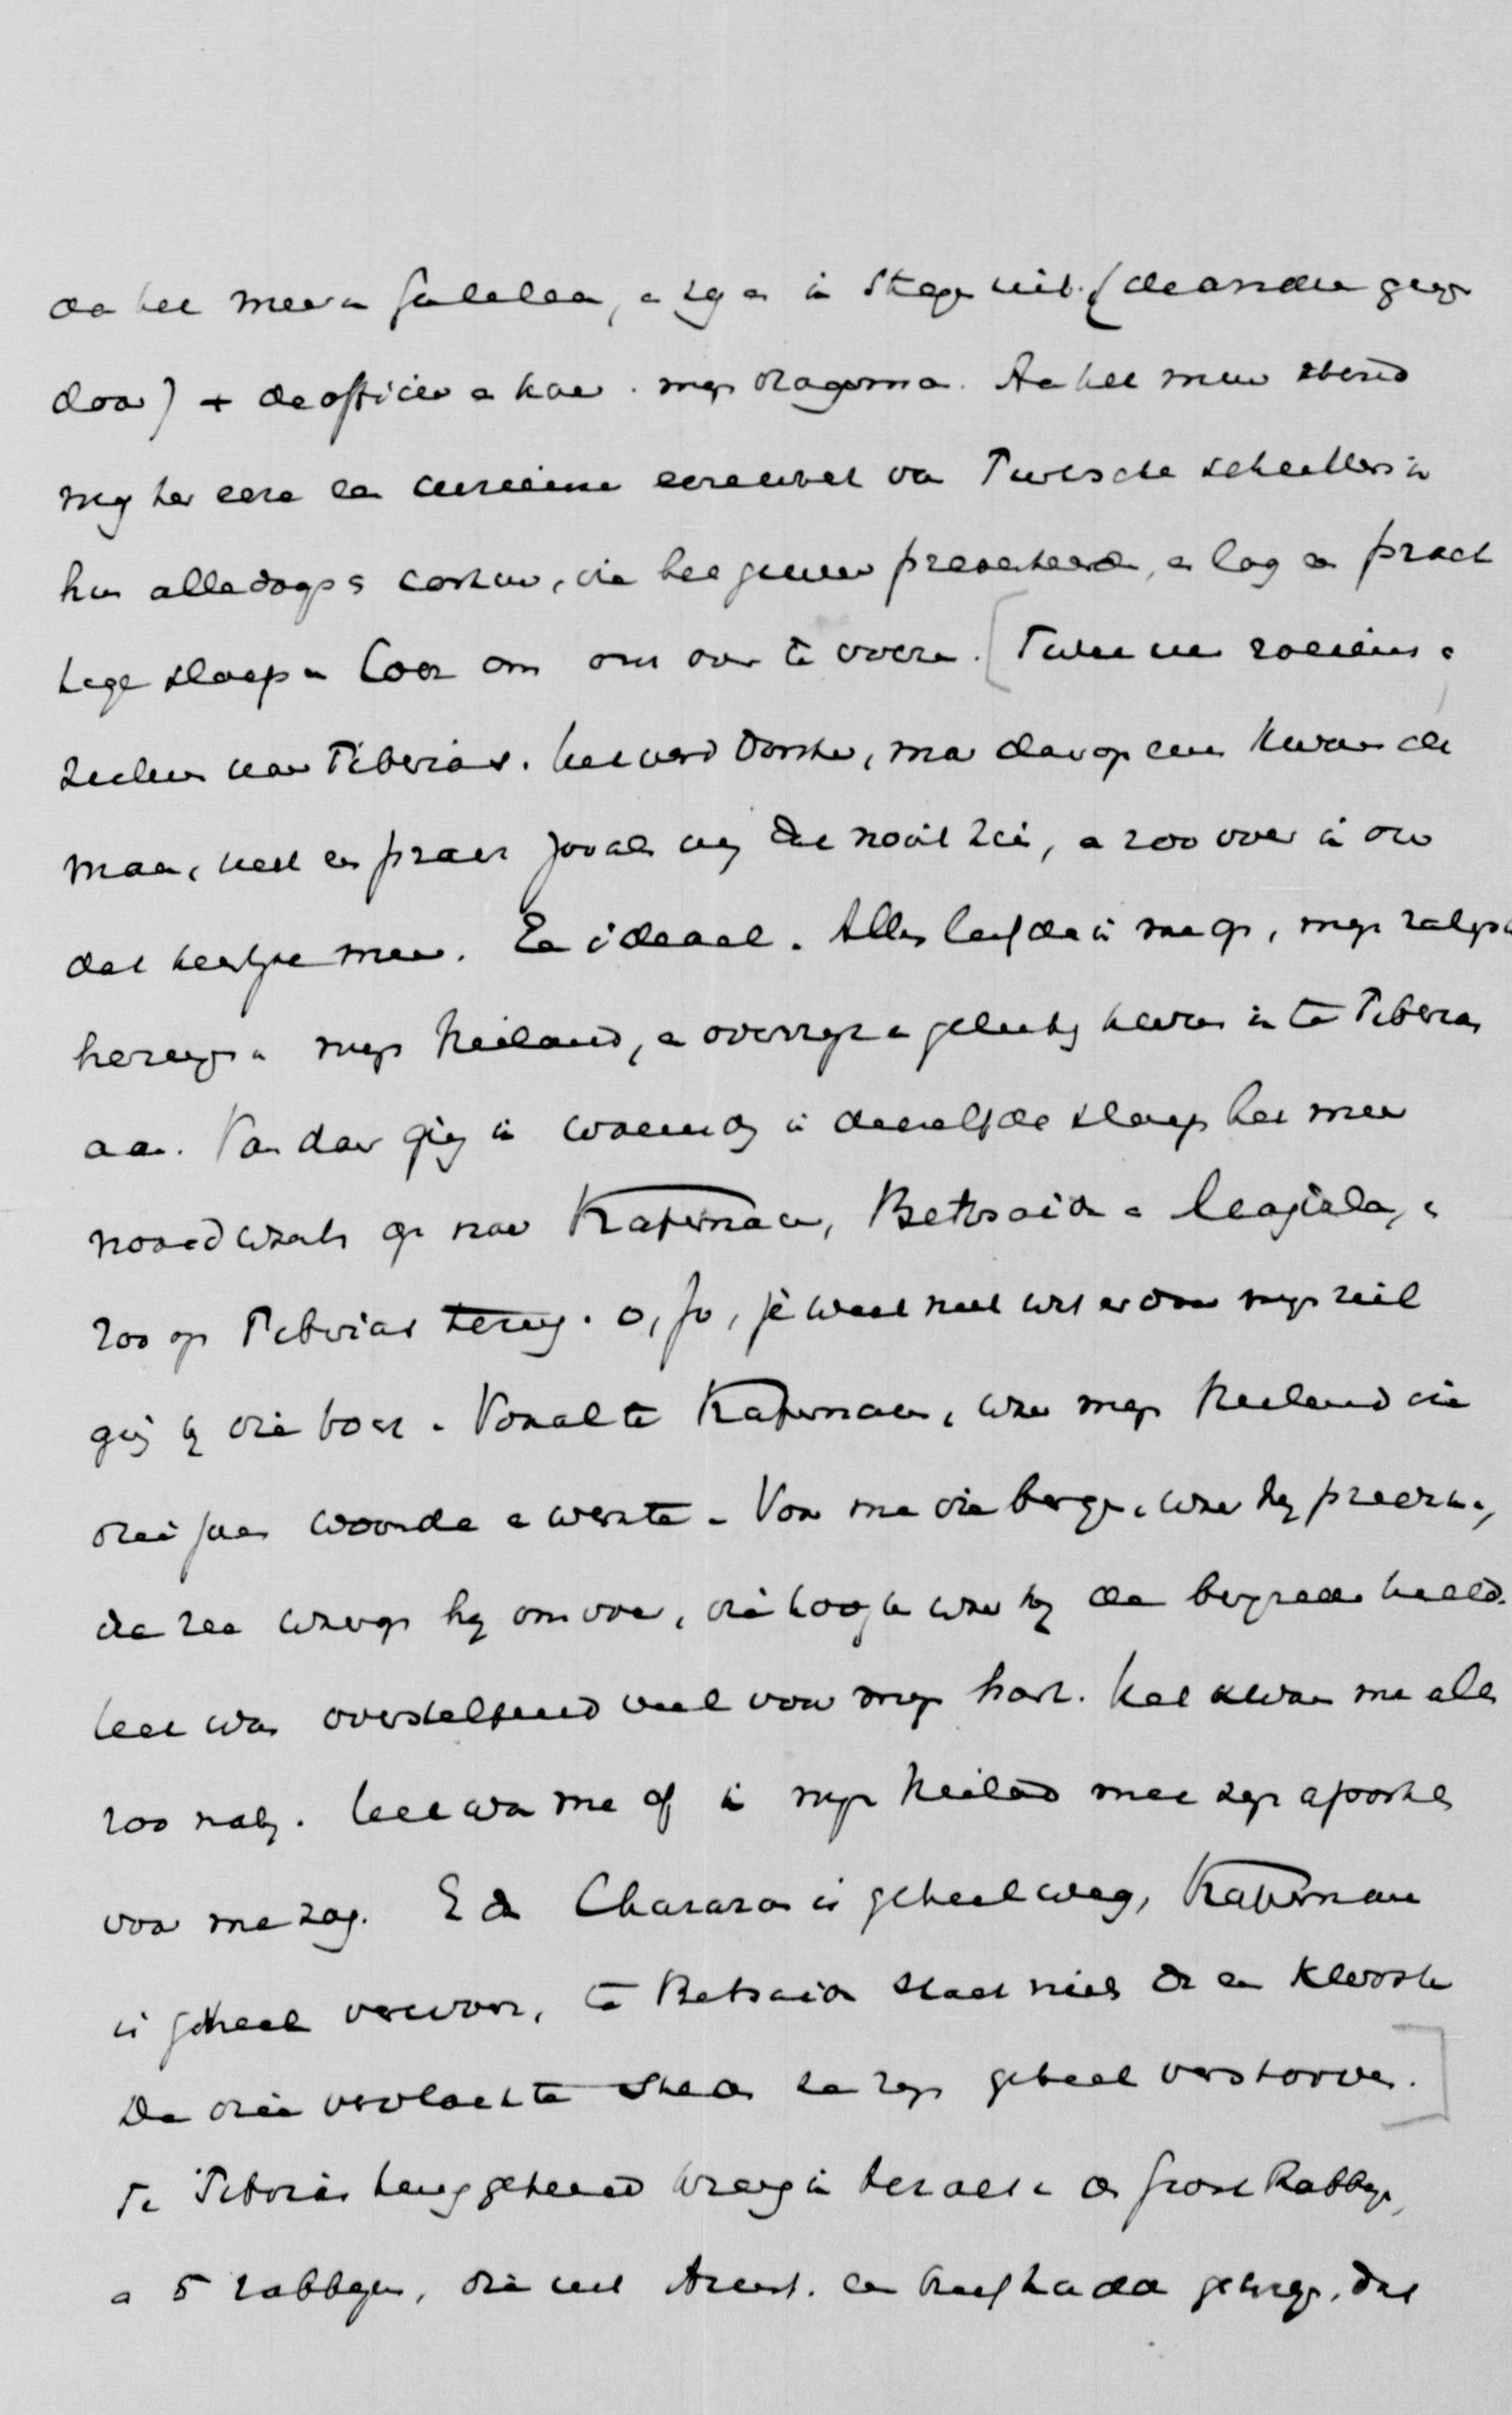 aan het meer van Galilea, en zijn er in Stage uit. (de andere gingen
door) + de officier en kav. mijn dragoman. Aan het meer stond
mij ter eere een curieuse eerewacht van Turksche schutters in
hun alledaags costuum, die het geweer presenteerden, er lag een pracht
tige sloep klaar om ons over te voeren. [Twee uur roeiens en
zeilen naar Tiberias. Het werd donker, maar daarop een kwam de
maan, met een pracht zooals wij dat nooit zien, en zoo over in ons
dat heerlijke meer. Een ideaal. Alles leefde in me op, mijn zalige
heugen mijn Heiland, en overrijk en gelukkig kwam ik te Tiberias
aan. Van daar ging ik woensdag in dezelfde sloep het meer
noordwaarts op naar Kapernaum, Betsaida en Magdala, en
zoo op Tiberias terug. O, Jo, je weet niet wat er door mijn ziel
ging bij die tocht. Vooral te Kapernaum, waar mijn Heiland die
drie jaar woonde en werkte. Voor me die bergen, waar hij preekte,
de zee waarop hij omvoer, die hoogte waar hij de bergrede hield.
Het was overstelpend veel voor mijn hart. Het kwam me alles
zoo nabij. Het was me of ik mijn Heiland met zijn apostelen
voor me zag. En Charazan is geheel weg, Kapernaum
is geheel verwoest, te Betsaida staat niets dan een klooster
De drie vervloekte steden ze zijn geheel verstorven.]
Te Tiberias teruggekeerd kreeg ik bezoek van den Groot Rabbijn,
en 5 rabbijnen, die uit Amst. een brief hadden gekregen, dat